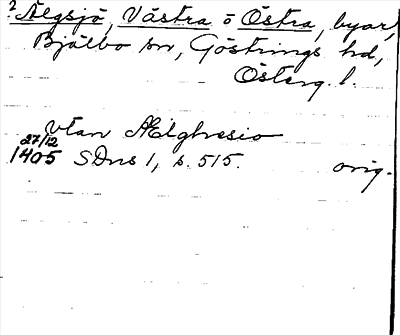 ? Älgsjö, Västra o Östra, byar,
Bjälbo sn, Göstrings hd,
Österg. l.
vtan Ælghresio
27/12
1405 SDns 1, s. 515. orig.